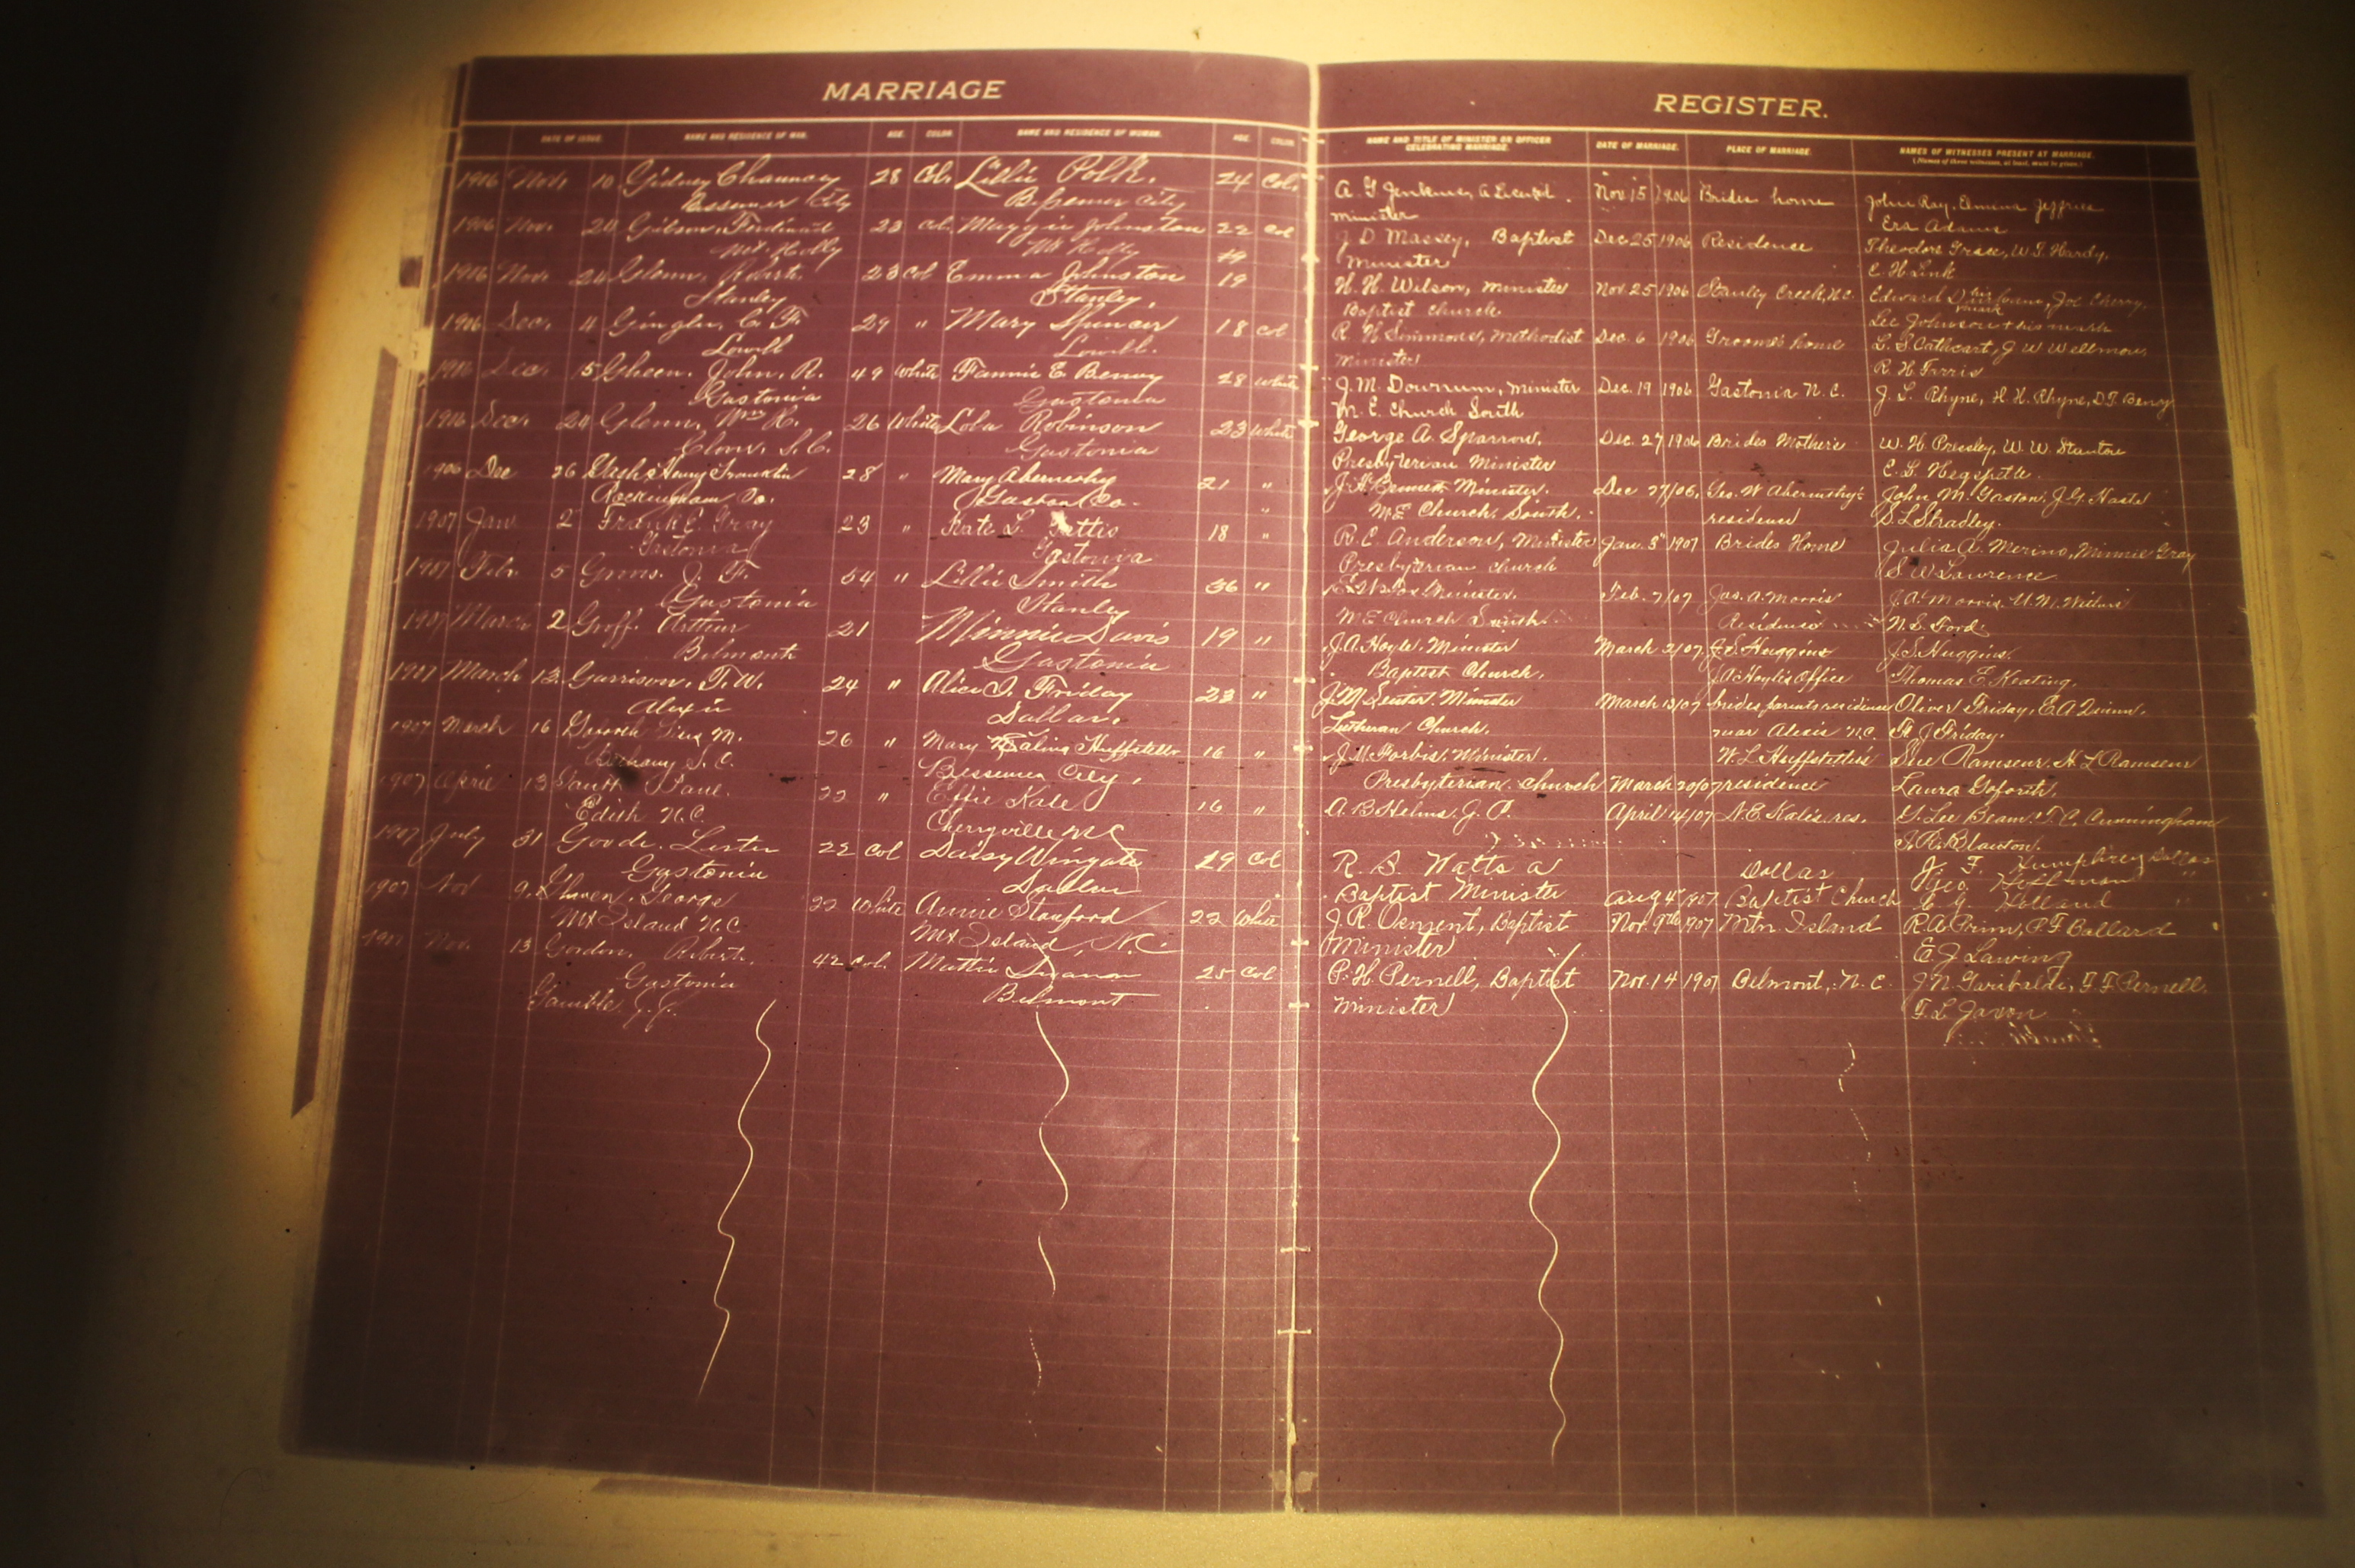 MARRIAGE
DATE OF ISSUE. NAME AND RESIDENCE OF MAN. AGE. COLOR. NAME AND RESIDENCE OF WOMAN. AGE. COLOR.
1906 Nov. 10 Gidney Chauncey 28 Col. Lillie Polk. 24 Col.
Bessemer City Bessemer City
1906 Nov. 20 Gibson, Ferdinand 23 Col. Maggie Johnston 22 Col
Mt. Holly Mt Holly
1906 Nov. 24 Glenn, Robert. 23 Col Emma Johnston 19
Stanley Stanley.
1906 Dec. 4 C. F. 29 " Mary Spencer 18 Col
Lowell Lowell.
1906 Dec. 5 Gheen. John, R. 49 White Fannie E. 28 White
Gastonia Gastonia
1906 Dec. 24 Glenn, Wm 26 White Robinson 23 White
Clover, S.C. Gastonia
1906 Dec 26 Henry Franklin 28 " Mary Abernethy 21 "
Rockingham Co. Gaston Co.
1907 Jan 2 Frank E. Gray 23 " Kate L. Pattis 18 "
Gastonia Gastonia
1907 Feb. 5 J. F. 54 " Lillie Smith 36 "
Gastonia Stanley
1907 March 2 Groff. Arthur 21 Minnie Davis 19 "
Belmont Gastonia
1907 March 13 Garrison. T. W. 24 " Alice I. Friday 23 "
Alexis Dallas.
1907 March 16 M. 26 " Mary Huffstetler 16 "
S. C. Bessemer City,
1907 April 13 Gantt Paul. 22 " Effie Kale 16 "
Edith N.C. Cherryville N C
1907 July 31 Goode. Lester 22 Col Daisy Wingate 29 Col
Gastonia Dallas
1907 Nov 9. George 22 White Annie Stanford 22 White
Mt Island N.C. Mt Island, N.C.
1907 Nov. 13 Gordon, Robert. 42 Col. Mattie 25 Col
Gastonia Belmont
Gamble
REGISTER.
NAME AND TITLE OF MINISTER OR OFFICER CELEBRATING MARRIAGE. DATE OF MARRIAGE. PLACE OF MARRIAGE. NAMES OF WITNESSES PRESENT AT MARRIAGE.
(Names of three witnesses, at least, must be given.)
A. G Jenkins, a Licensed Nov 15 1906 Brides home John Ray, Elmina Jeffries
minister Era Adams
J D Massey, Baptist Dec 25 1906 Residence Theodore Grace, W. T. Hardy,
Minister E. H. Link
H. H. Wilson, minister Nov. 25 1906 Stanly Creek, N.C. Edward his Joe Cherry,
Baptist Church mark Lee Johnson + his mark
R H Simmons, Methodist Dec. 6 1906 Groome's home L. S. Cathcart, J W Wellmon,
minister R. H. Ferris
J. M. Downum, Minister Dec. 19 1906 Gastonia N. C. J. L. Rhyne, H. H. Rhyne,
M. E. Church South
George A. Sparrow, Dec. 27 1906 Brides Mothers W. H. Pressley, W. W. Stanton
Presbyterian Minister
Minister. Dec 27/06. Geo. W Abernethy's John M. Gaston,
M. E Church. South. residence S. L Stradley.
R. C. Anderson, Minister Jan. 3 1907 Brides Home Julia A. Merino, Minnie Gray
Presbyterian church S. W. Lawrence
Minister. Feb. 7/07 Jas. A. Morris J. A. Morris
M E Church South Residence Ford
J. A. Hoyle. Minister March 2/07 J. S. Huggins J. S. Huggins.
Baptist Church. J. A. Hoyle's Office Thomas E. Keating.
J. M. Senter. Minister March 13/07 brides parents residence Oliver Friday, E. A Quinn.
Lutheran Church. near Alexis N.C. J. Friday.
J. M. Forbis. Minister. W. L. Huffstetler's Sue Ramseur. H. L. Ramseur
Presbyterian. Church March 20/07 residence Laura Goforth.
A. B. Helms. J. P. April 14/07 N. E. Kale's. res. G. Lee Beam. T. C. Cunningham
J. R. Blanton.
R. B. Watts a Dallas J. F. Humphrey Dallas
Baptist Minister Aug 4 1907. Baptist Church Geo. Hoffman "
Holland "
J. R. Cement, Baptist Nov. 9th 1907 Mtn. Island R. A. Prim, P. F. Ballard
Minister E. J. Lawing
P. H. Pernell, Baptist Nov. 14 1907 Belmont, N. C. J. N. Garibaldi, F. F. Pernell,
Minister F. L. Jason